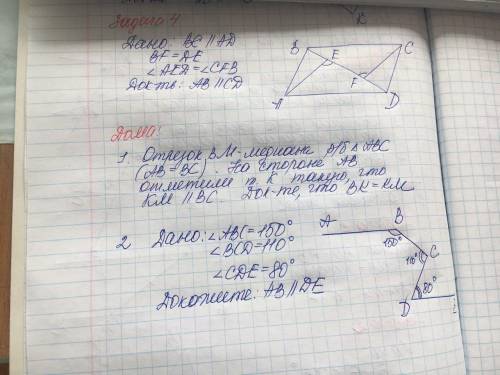 Задача 4
Дано: BC || AD
BF = DE
∠AED = ∠CFB
Док-ть: AB || CD
B
E
C
F
A
D
K
Дома:
1. Отрезок BM - медиана р/б △ ABC
(AB = BC). На стороне AB
отметили т. K такую, что
KM || BC. Док-те, что BK = KM
2 Дано: ∠ABC = 150°
∠BCD = 110°
∠CDE = 80°
Докажите: AB || DE
A
B
150°
110°
C
D
80°
E